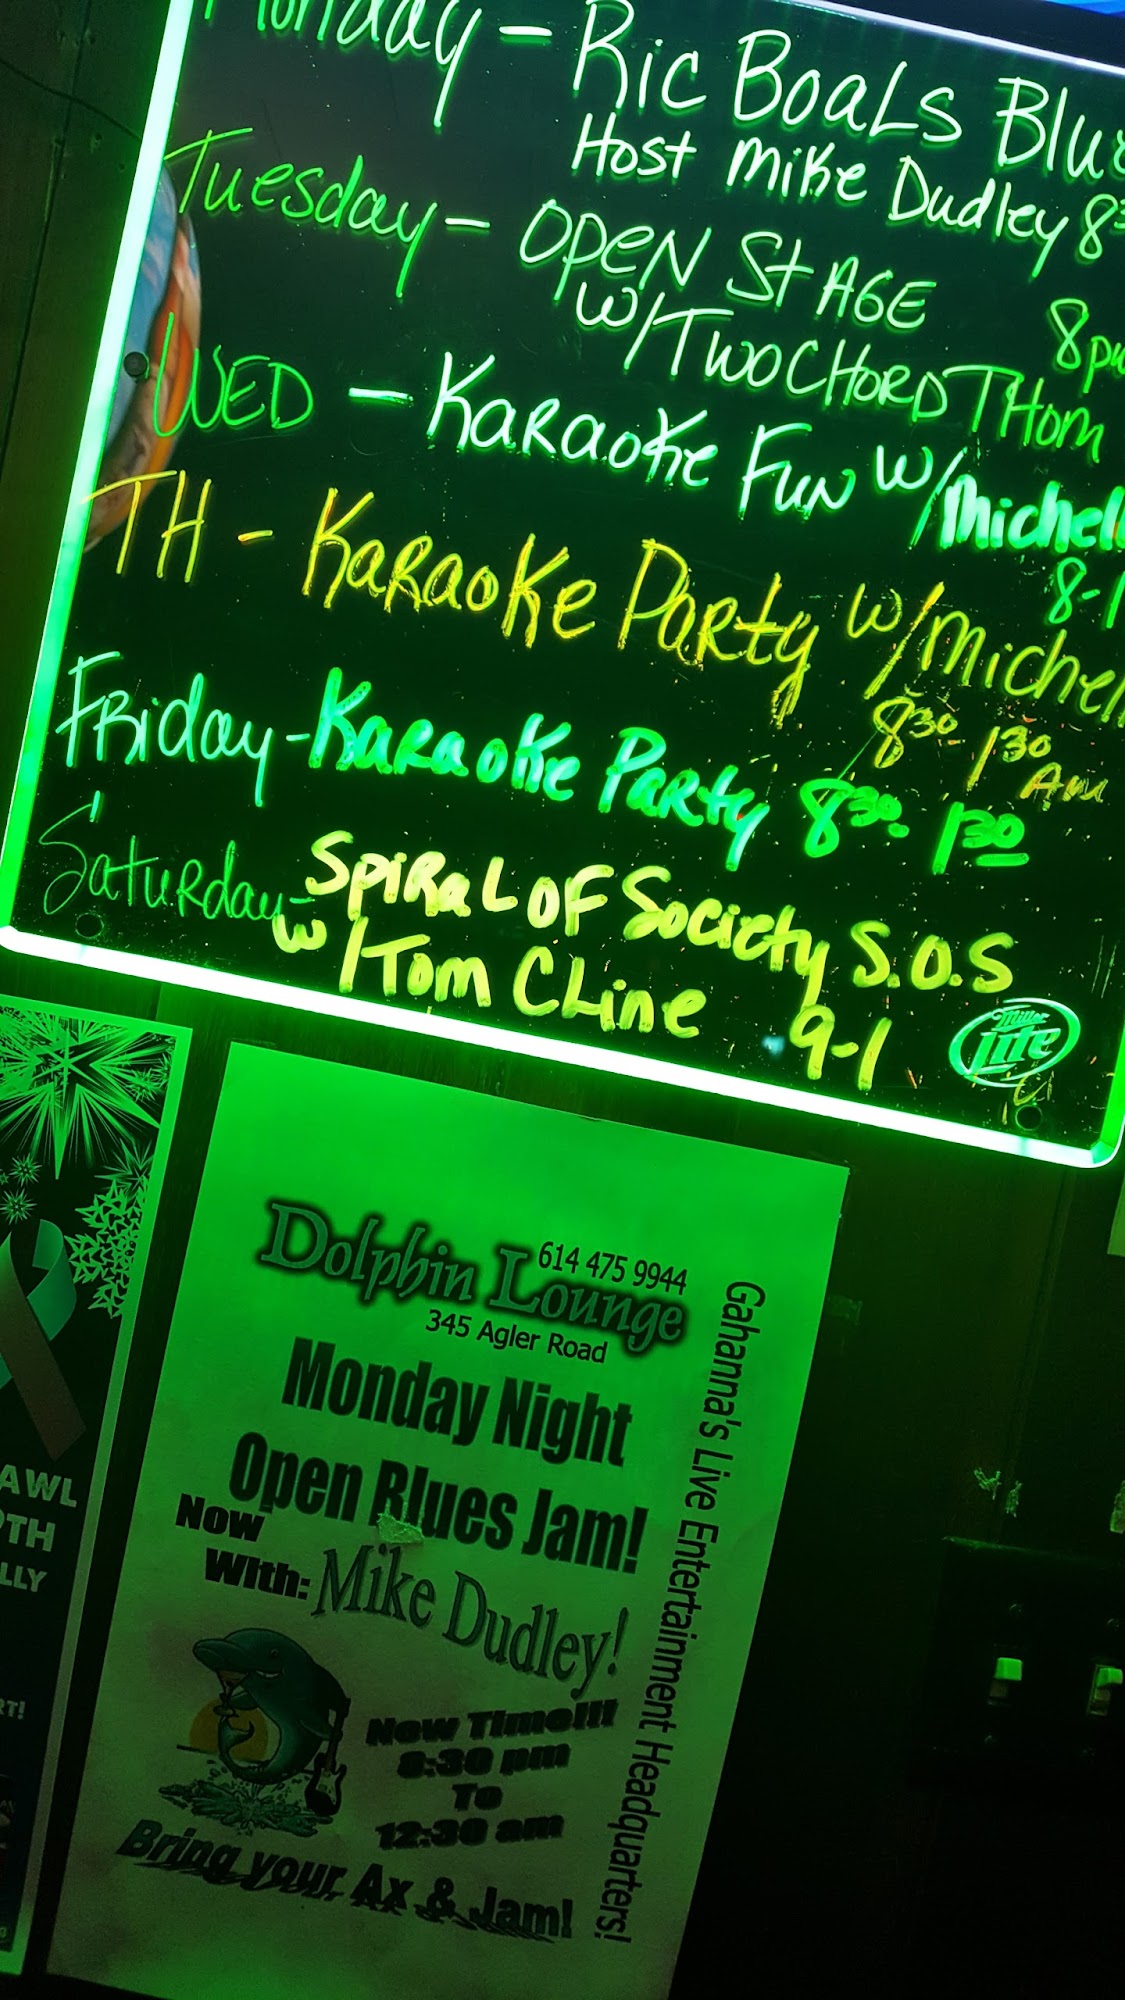 Monday - Ric Boals
Host Mike Dudley
Tuesday - Open Stage 8pm
w/ Two Chord Thom
Wed - Karaoke Fun w/
8-1
TH - Karaoke Party w/
8:30 - 1:30 Am
Friday - Karaoke Party 8:30 - 1:30
Saturday - Spiral of Society S.O.S
w/ Tom Cline 9-1
Miller
Lite
Dolphin Lounge
614 475 9944
345 Agler Road
Monday Night
Open Blues Jam!
Now
With: Mike Dudley!
New Time!!!
8:30 pm
To
12:30 am
Bring your Ax & Jam!
Gahanna's Live Entertainment Headquarters!